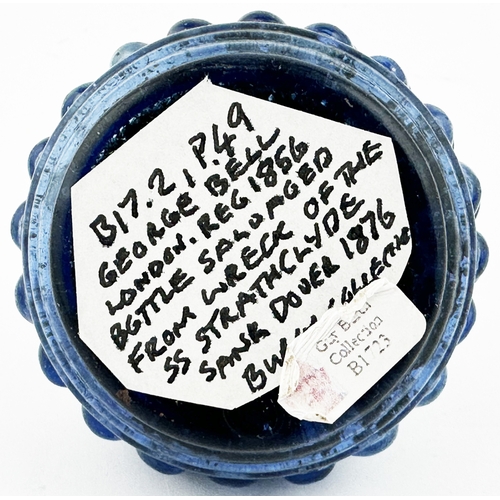 B17.2, P.49
GEORGE BELL
LONDON. REG 1856
BOTTLE SALVAGED
FROM WRECK OF THE
SS STRATHCLYDE
SANK DOVER 1876
Collection
B1723